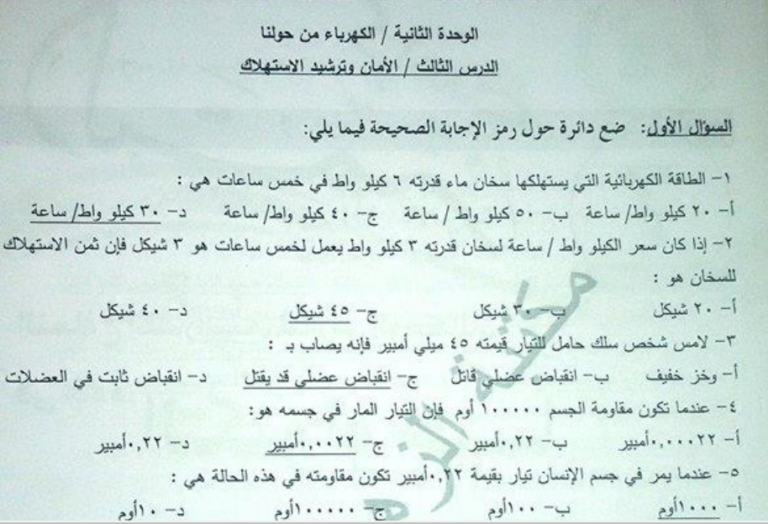 الوحدة الثانية / الكهرباء من حولنا
الدرس الثالث / الأمان وترشيد الاستهلاك
السؤال الأول: ضع دائرة حول رمز الإجابة الصحيحة فيما يلي:
١- الطاقة الكهربائية التي يستهلكها سخان ماء قدرته ٦ كيلو واط في خمس ساعات هي :
أ- ٢٠ كيلو واط/ ساعة ب- ٥٠ كيلو واط / ساعة ج- ٤٠ كيلو واط/ ساعة د- ٣٠ كيلو واط/ ساعة
٢- إذا كان سعر الكيلو واط / ساعة لسخان قدرته ٣ كيلو واط يعمل لخمس ساعات هو ٣ شيكل فإن ثمن الاستهلاك
للسخان هو :
أ- ٢٠ شيكل ب- ٣٠ شيكل ج- ٤٥ شيكل د- ٤٠ شيكل
٣- لامس شخص سلك حامل للتيار قيمته ٤٥ ميلي أمبير فإنه يصاب بـ :
أ- وخز خفيف ب- انقباض عضلي قاتل ج- انقباض عضلي قد يقتل د- انقباض ثابت في العضلات
٤- عندما تكون مقاومة الجسم ١٠٠٠٠٠ أوم فإن التيار المار في جسمه هو:
أ- ٠,٠٠٠٢٢أمبير ب- ٠,٢٢أمبير ج- ٠,٠٠٢٢أمبير د- ٠,٢٢أمبير
٥- عندما يمر في جسم الإنسان تيار بقيمة ٠,٢٢أمبير تكون مقاومته في هذه الحالة هي :
أ- ١٠٠٠أوم ب- ١٠٠أوم ج- ١٠٠٠٠٠أوم د- ١٠أوم